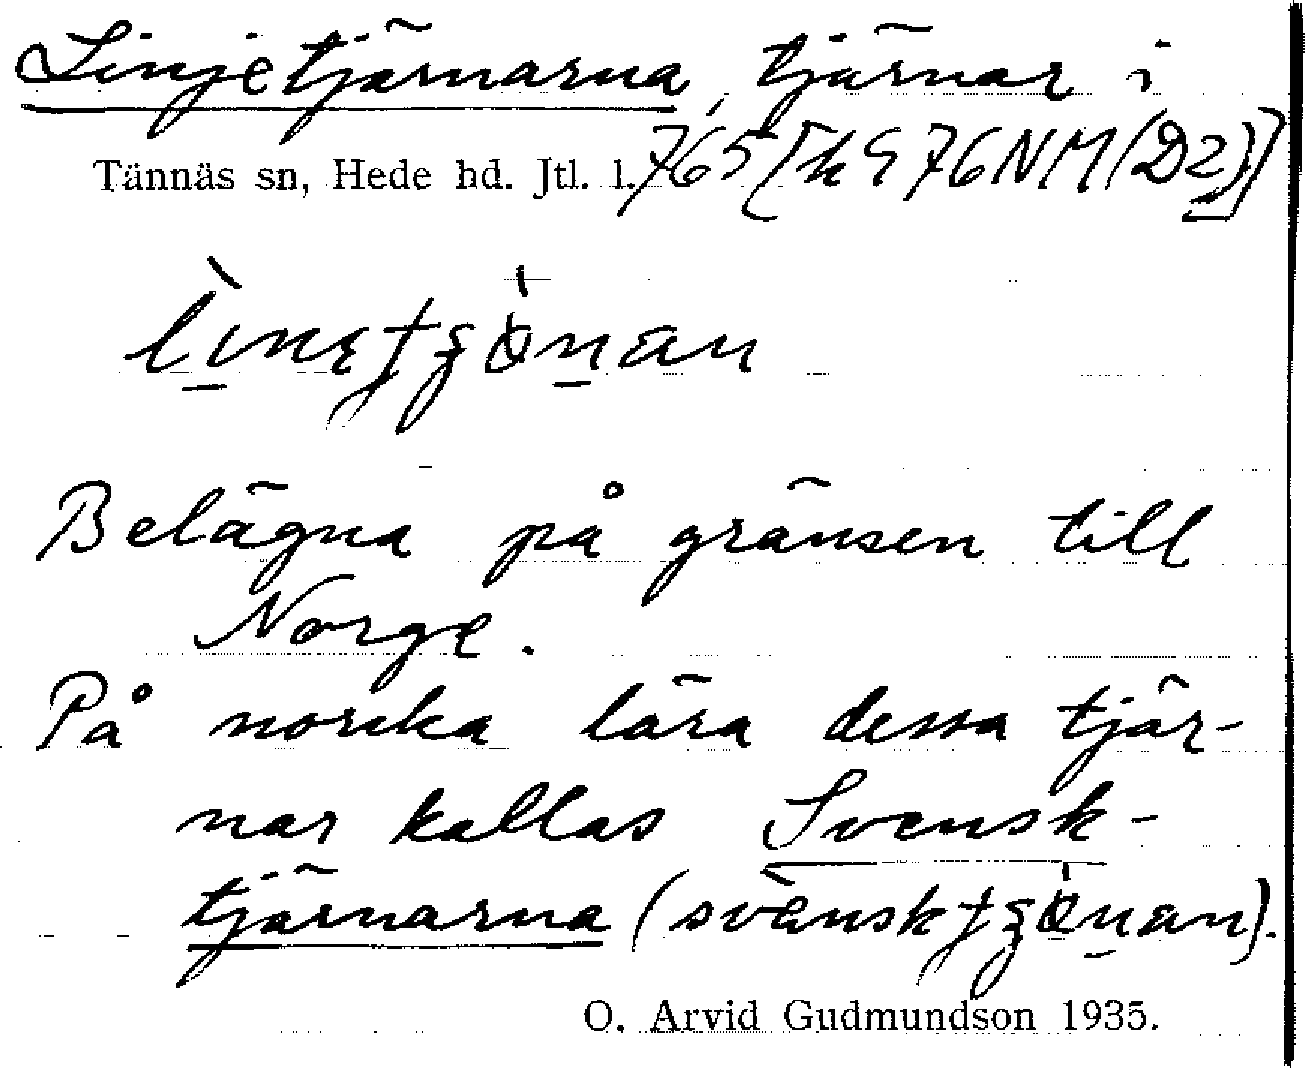 Linjetjärnarna, tjärnar i
Tännäs sn, Hede hd. Jtl. l. 765[k G 76 NM (D2)]
Belägna på gränsen till
Norge.
På norska lära dessa tjär-
nar kallas Svensk-
tjärnarna
O. Arvid Gudmundson 1935.